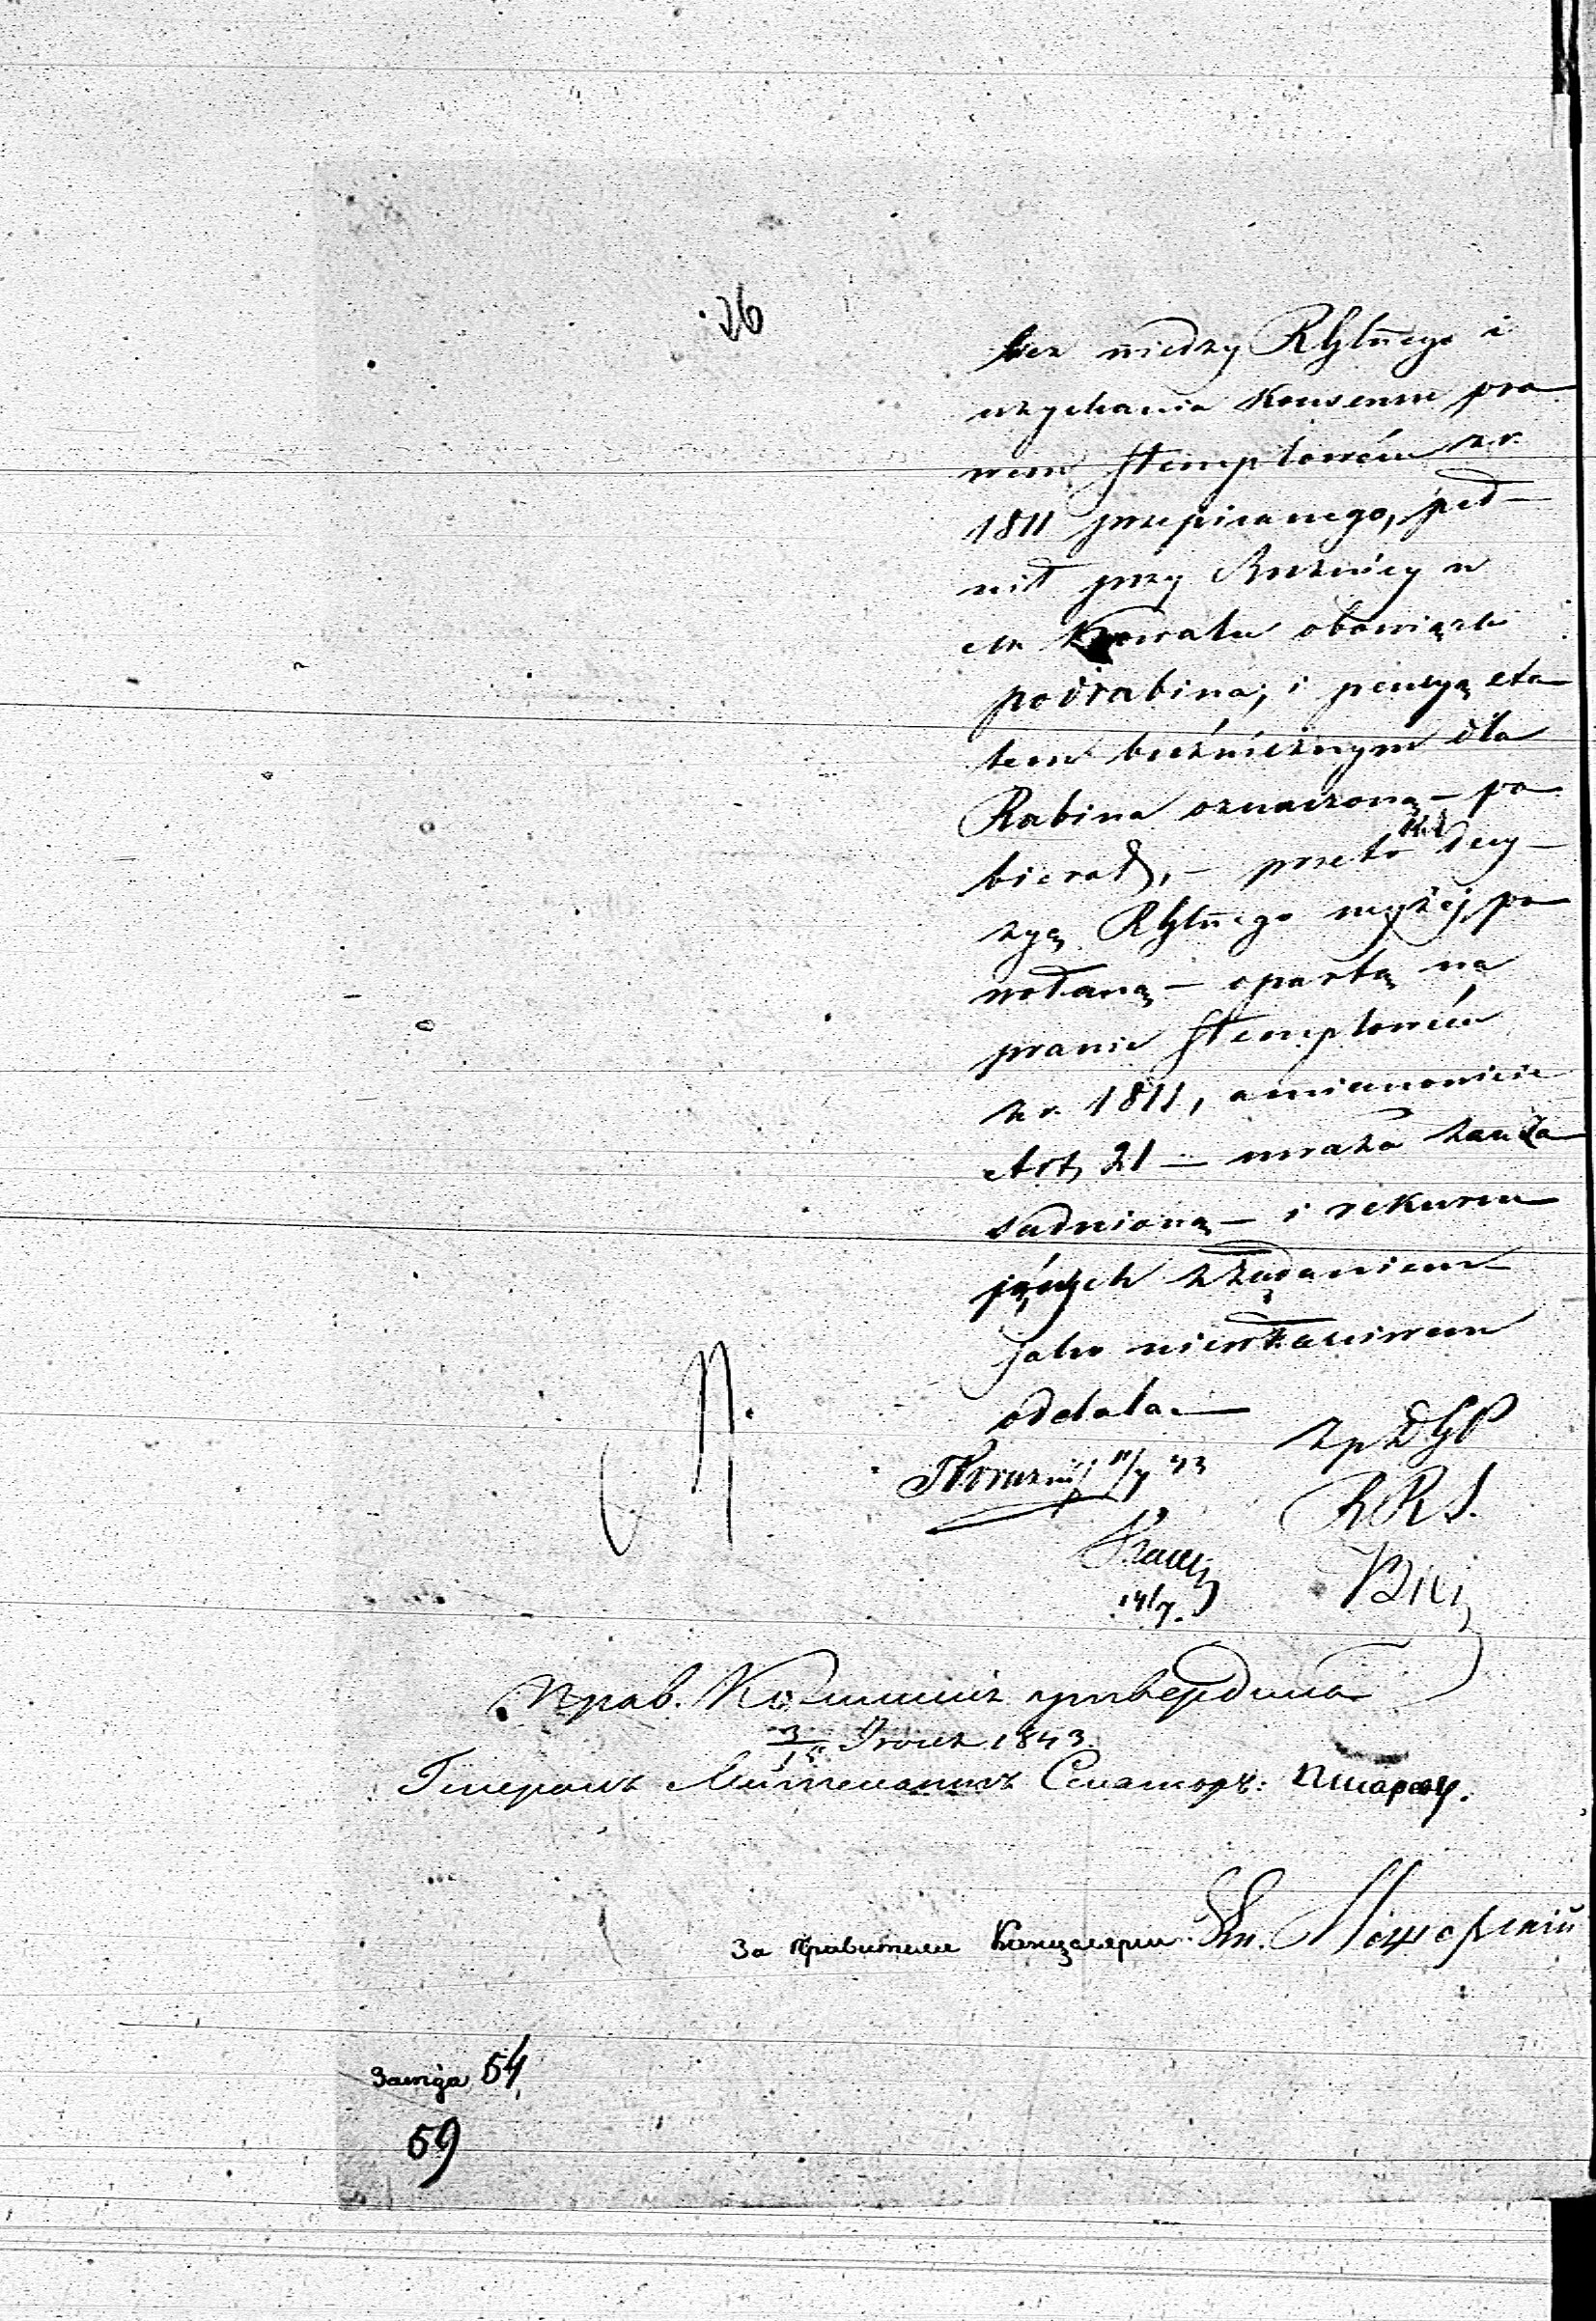 26
bez wiedzy RGlnego i
uzyskania Konsensu pra
wem stemplowém z r.
1811 przepisanego, peł-
nił przy Bożnicy w
Kowalu obowiązki
podrabina; i pensyą eta
tem bóżniczným dla
Rabina oznaczoną – po
bierał, – przeto decy-
zyą RGlnego wyżej po
wołaną – opartą na
prawie stemplowém
z r. 1811, a mianowicie
Art. 21 – uważa za uza
sadnioną – i rekursu
jących z żądaniem
jako niewłaściwem
oddala –
11/7 43
z p DGP
RRS.
14/7.
Прав. Коммисія утвердила
3/15 Іюля 1843.
Генералъ Лейтенантъ Сенаторъ: Писарев.
За Правителя Канцеляріи
54
59